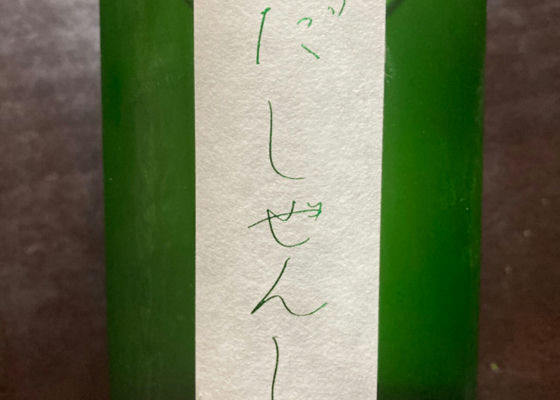 だしぜんし